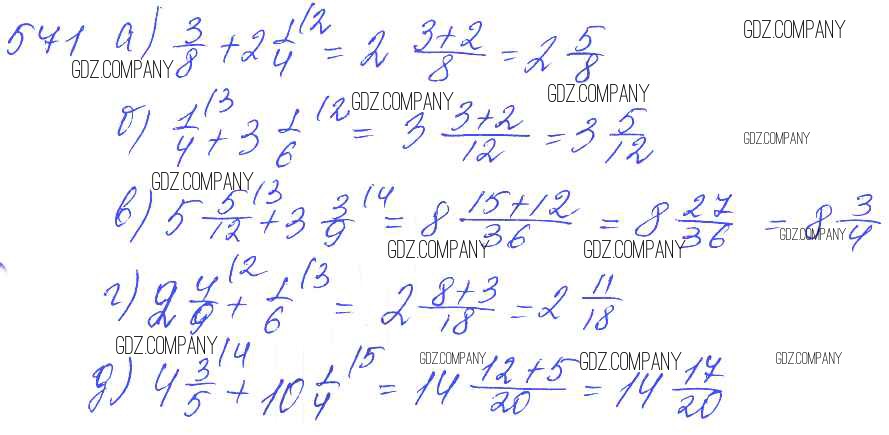 571 а) 3/8 + 2 1/4 (2 = 2 (3+2)/8 = 2 5/8
GDZ.COMPANY
GDZ.COMPANY
б) 1/4 (3 + 3 1/6 (2 = 3 (3+2)/12 = 3 5/12
GDZ.COMPANY
GDZ.COMPANY
GDZ.COMPANY
в) 5 5/12 (3 + 3 3/9 (4 = 8 (15+12)/36 = 8 27/36 = 8 3/4
GDZ.COMPANY
GDZ.COMPANY
GDZ.COMPANY
GDZ.COMPANY
г) 2 4/9 (2 + 1/6 (3 = 2 (8+3)/18 = 2 11/18
д) 4 3/5 (4 + 10 1/4 (5 = 14 (12+5)/20 = 14 17/20
GDZ.COMPANY
GDZ.COMPANY
GDZ.COMPANY
GDZ.COMPANY